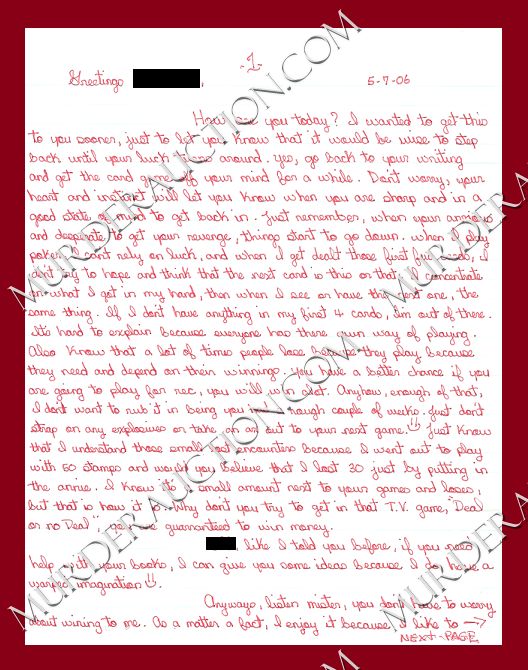 -1-
Greetings , 5-7-06
How are you today? I wanted to get this
to you sooner, just to let you know that it would be wise to step
back until your luck comes around. yes, go back to your writing
and get the card game off your mind for a while. Don't worry, your
heart and instinct will let you know when you are sharp and in a
good state of mind to get back in. Just remember, when your anxious
and desperate to get your revenge, things start to go down. When I play
poker I can't rely on luck, and when I get dealt those first five cards, I
don't try to hope and think that the next card is this or that. I concentrate
on what I got in my hand, then when I see or have the next one, the
same thing. If I don't have anything in my first 4 cards, I'm out of there.
It's hard to explain because everyone has there own way of playing.
Also know that a lot of times people lose because they play because
they need and depend on their winnings. you have a better chance if you
are going to play for rec, you will win alot. Anyhow, enough of that,
I don't want to rub it in being you had a rough couple of weeks. Just don't
strap on any explosives or take an ax out to your next game. Just know
that I understand those small encounters because I went out to play
with 50 stamps and would you believe that I lost 30 just by putting in
the annie. I know its a small amount next to your games and loses,
but that is how it is. Why don't you try to get in that T.V. game, "Deal
or no Deal", your guaranteed to win money.
like I told you before, if you need
help with your books, I can give you some ideas because I do have a
warped imagination.
Anyways, listen mister, you don't have to worry
about wining to me. As a matter a fact, I enjoy it because I like to →
NEXT-PAGE
MURDERAUCTION.COM